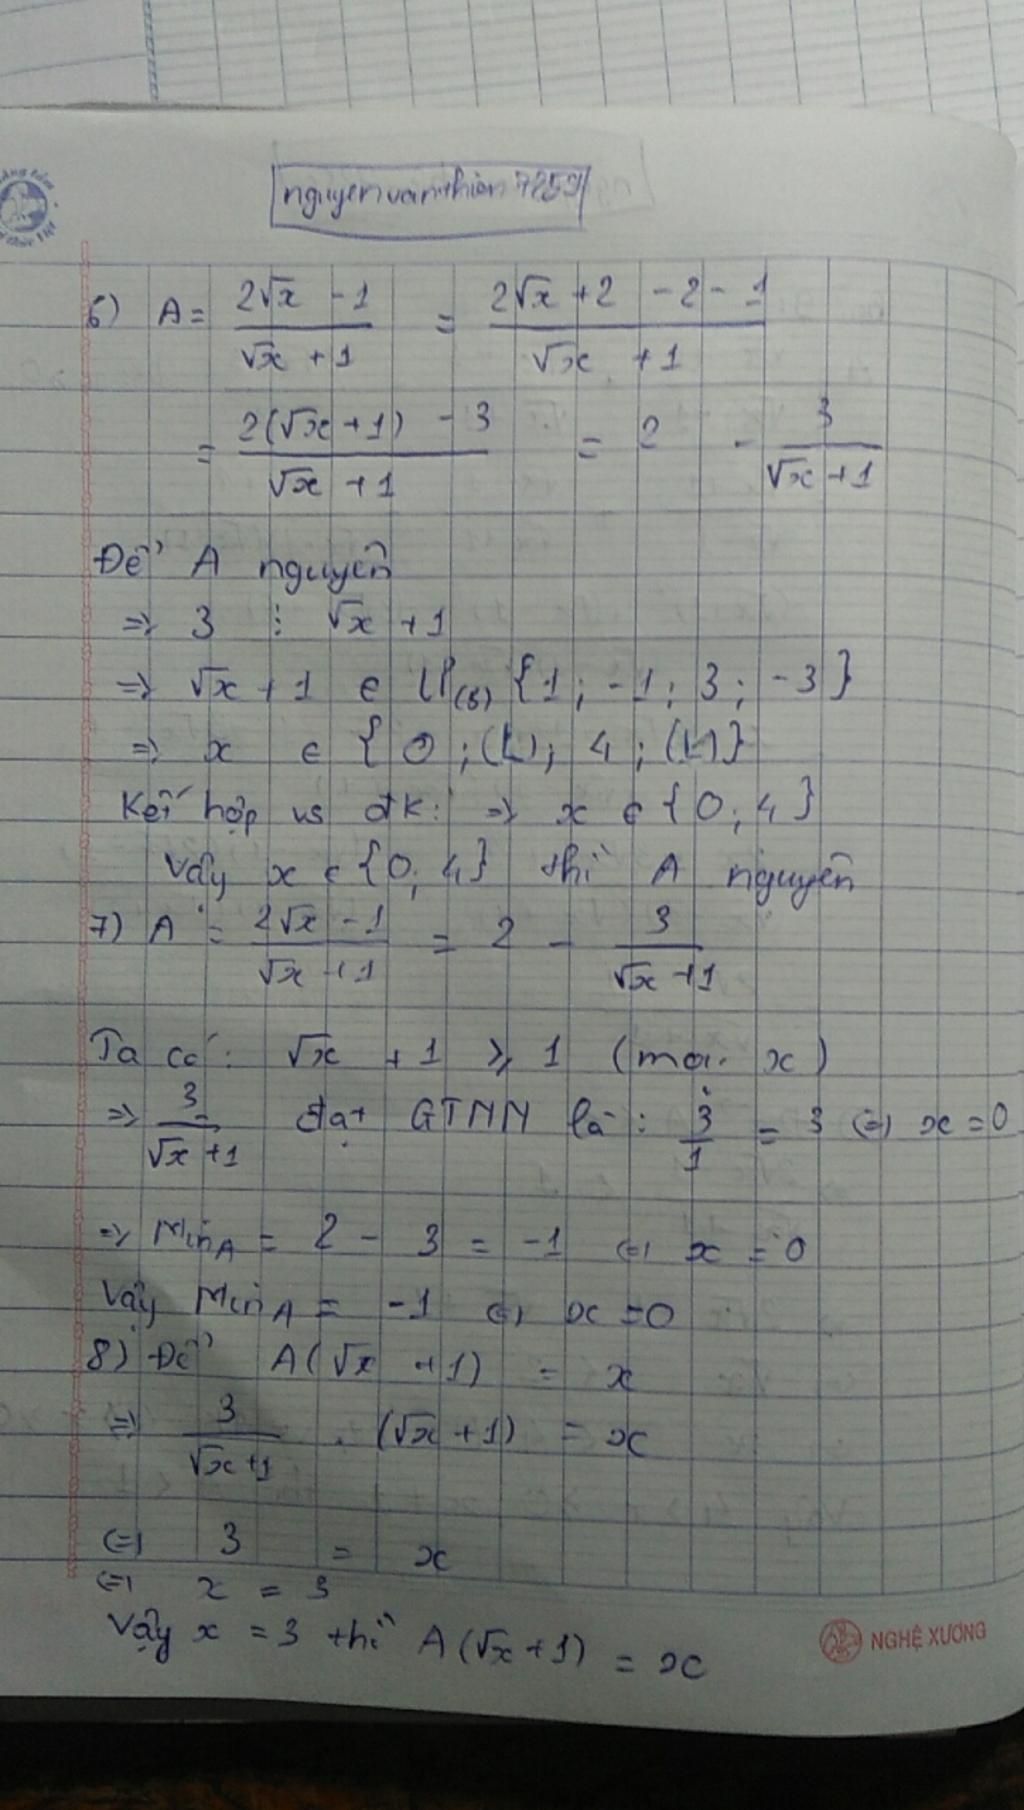 nguyenvanthien7259
6) A = (2√x - 1)/(√x + 1) = (2√x + 2 - 2 - 1)/(√x + 1)
= (2(√x + 1) - 3)/(√x + 1) = 2 - 3/(√x + 1)
Để A nguyên
=> 3 ⋮ √x + 1
=> √x + 1 ∈ Ư(3) {1; -1; 3; -3}
=> x ∈ {0; (L); 4; (L)}
Kết hợp vs đk: => x ∈ {0, 4}
Vậy x ∈ {0; 4} thì A nguyên
7) A = (2√x - 1)/(√x + 1) = 2 - 3/(√x + 1)
Ta có: √x + 1 ≥ 1 (mọi x)
=> 3/(√x + 1) đạt GTNN là: 3/1 = 3 <=> x = 0
=> Min A = 2 - 3 = -1 <=> x = 0
Vậy Min A = -1 <=> x = 0
8) Để A(√x + 1) = x
=> 3/(√x + 1) . (√x + 1) = x
<=> 3 = x
<=> x = 3
Vậy x = 3 thì A(√x + 1) = x
NGHỆ XƯƠNG